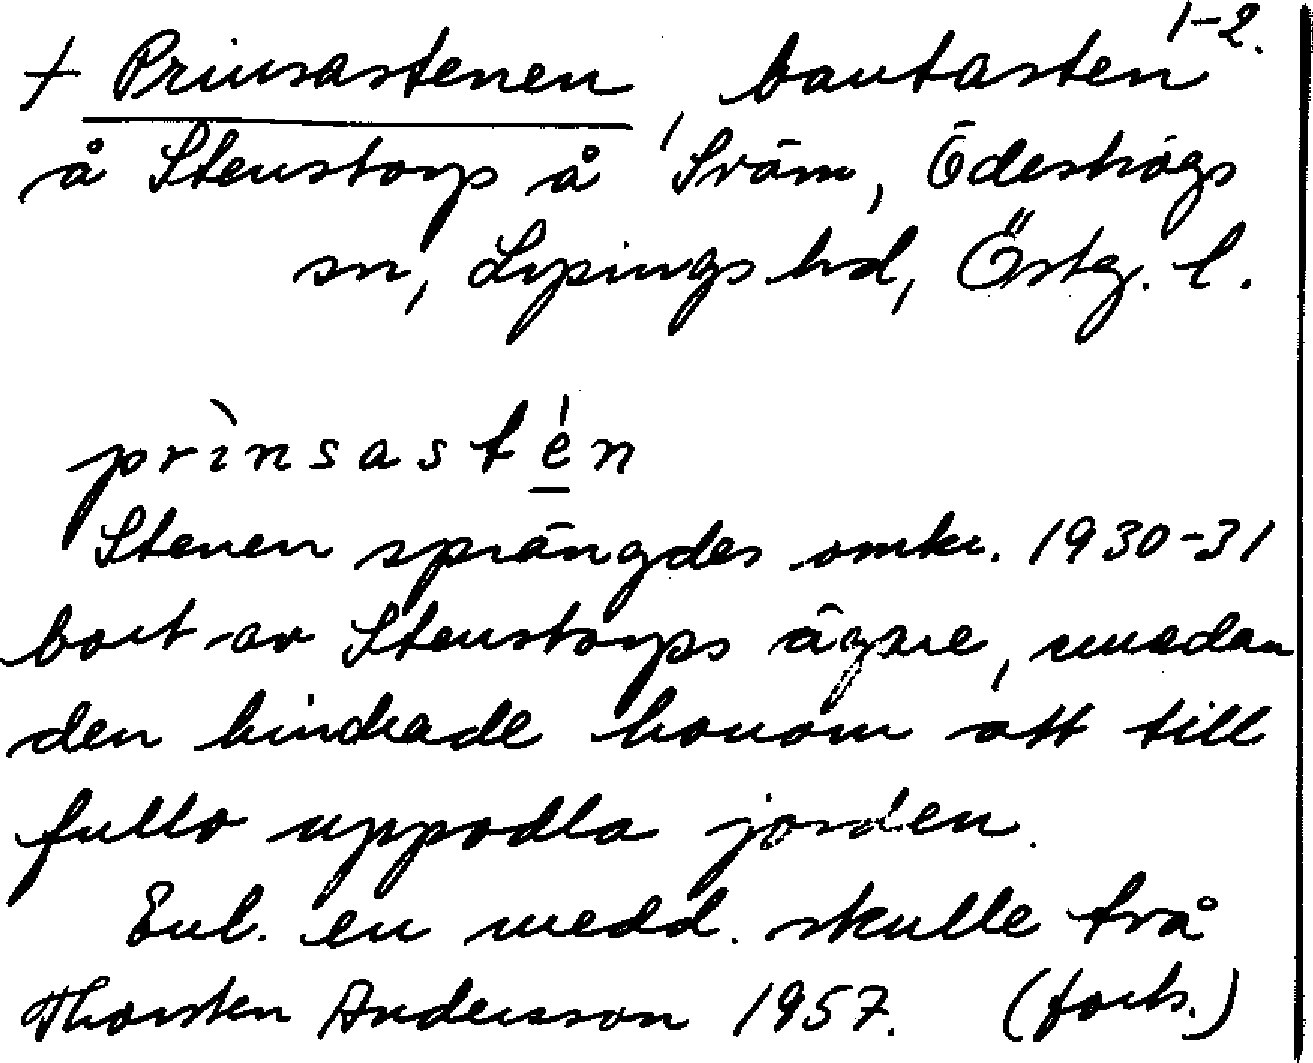 1-2.
+ Prinsastenen, bautasten
å Stenstorp å Sväm, Ödeshögs
sn, Lysings hd, Östg. l.
prìnsastén
Stenen sprängdes omkr. 1930-31
bort av Stenstorps ägare, emedan
den hindrade honom att till
fullo uppodla jorden.
Enl. en medd. skulle två
Thorsten Andersson 1957. (forts.)